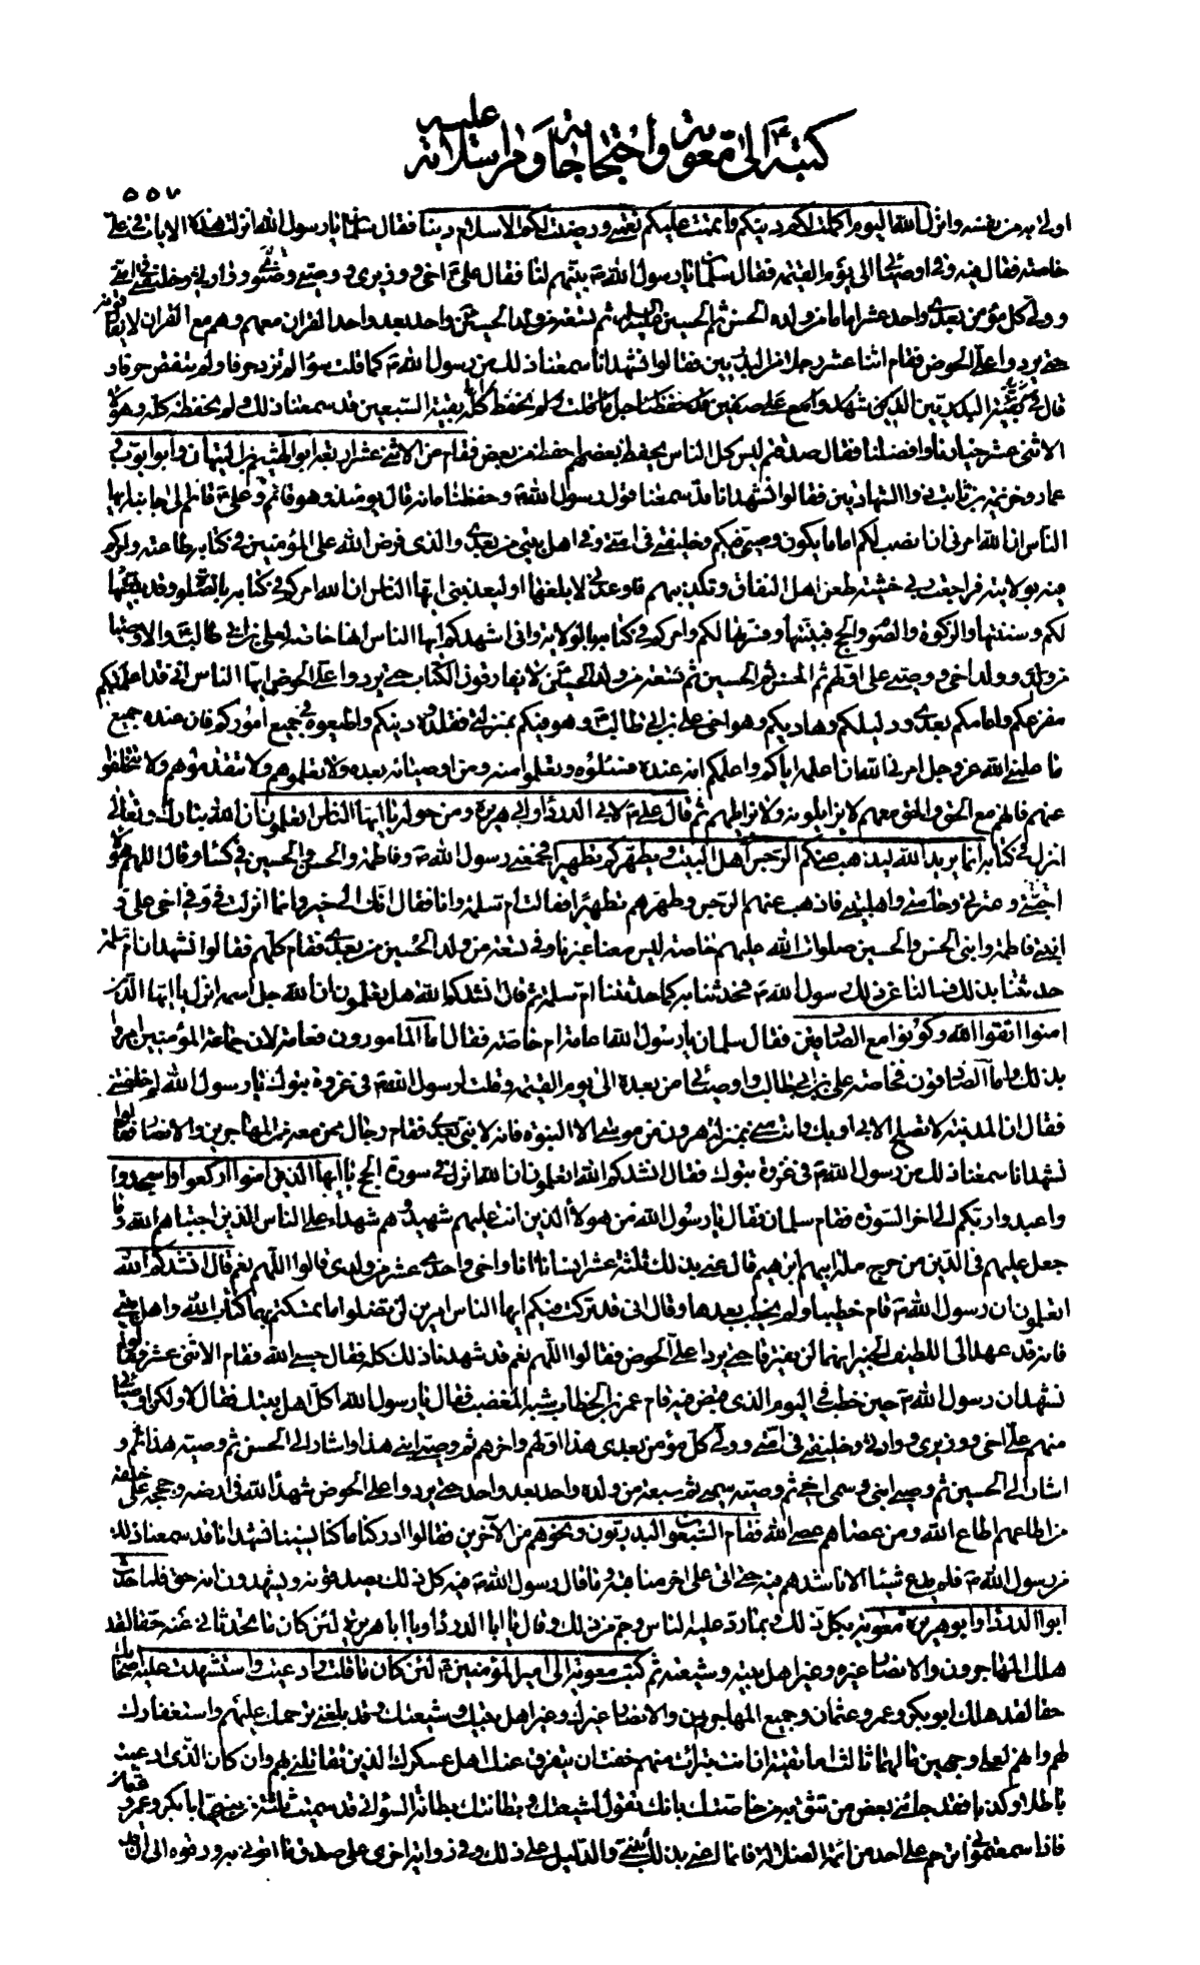 كتبه ع الى معوية وأحتجاجاته ومراسلاته عليه
٥٥٧
اولى به من نفسه وانزل الله اليوم اكملت لكم دينكم واتممت عليكم نعمتي ورضيت لكم الاسلام دينا فقال سلمان يا رسول الله انزلت هذه الايات في علي
خاصة فقال فيه وفي اوصيائي الى يوم القيمة فقال سلمان يا رسول الله ص بينهم لنا فقال علي ع اخي ووزيري ووصيي ووارثي وخليفتي في امتي
وولي كل مؤمن بعدي واحد عشر اماما من ولده الحسن ثم الحسين ثم تسعة من ولد الحسين ع واحد بعد واحد القران معهم وهم مع القران لا يفارقونه
حتى يردوا علي الحوض فقام اثنا عشر رجلا من البدريين فقالوا نشهد انا سمعنا ذلك من رسول الله ص كما قلت سواء لم تزد حرفا ولم تنقص حرفا و
قال بقية البدريين الذين شهدوا مع علي صفين قد حفظنا جل ما قلت ولم نحفظ كله بقية السبعين قد سمعنا ذلك ولم نحفظه كله وهؤلاء
الاثنى عشر خيارنا وافضلنا فقال صدقتم ليس كل الناس يحفظ بعضهم احفظ من بعض فقام من الاثنى عشر اربعة ابو الهيثم بن التيهان وابو ايوب و
عمار وخزيمة بن ثابت ذو الشهادتين فقالوا نشهد انا قد سمعنا قول رسول الله ص وحفظنا ما قال يومئذ وهو قائم وعلي ع قائم الى جانبه ايها
الناس ان الله امرني ان انصب لكم اماما يكون وصيي فيكم وخليفتي في امتي وفي اهل بيتي من بعدي والذي فرض الله على المؤمنين في كتابه طاعته وامركم
فيه بولايته فراجعت ربي خشية طعن اهل النفاق وتكذيبهم فاوعدني لابلغنها او ليعذبني ايها الناس ان الله امركم في كتابه بالصلوة وقد بينتها
لكم وسننتها والزكوة والصوم والحج فبينتها وفسرتها لكم وامركم في كتابه بالولاية واني اشهدكم ايها الناس انها خاصة لعلي بن ابي طالب والاوصياء
من ولدي وولد اخي ووصيي علي اولهم ثم الحسن ثم الحسين ثم تسعة من ولد الحسين ع لا يفارقون الكتاب حتى يردوا علي الحوض ايها الناس اني قد اعلمتكم
مفزعكم وامامكم بعدي ودليلكم وهاديكم وهو اخي علي بن ابي طالب ع وهو فيكم بمنزلتي فقلدوه دينكم واطيعوه في جميع اموركم فان عنده جميع
ما علمني الله عز وجل امرني الله ان اعلمه اياكم واعلمكم انه عنده فسئلوه وتعلموا منه ومن اوصيائه بعده ولا تعلموهم ولا تتقدموهم ولا تتخلفوا
عنهم فانهم مع الحق والحق معهم لا يزايلونه ولا يزايلهم ثم قال علي ع لابي الدرداء وابي هريرة ومن حوله يا ايها الناس اتعلمون ان الله تبارك وتعالى
انزل في كتابه انما يريد الله ليذهب عنكم الرجس اهل البيت ويطهركم تطهيرا فجمعني رسول الله ص وفاطمة والحسن والحسين في كساء وقال اللهم هؤلاء
احبتي وعترتي وخاصتي واهل بيتي فاذهب عنهم الرجس وطهرهم تطهيرا فقالت ام سلمة وانا فقال انك الى خير وانما انزلت في وفي اخي علي و
ابنتي فاطمة وابني الحسن والحسين صلوات الله عليهم خاصة ليس معنا غيرنا وفي تسعة من ولد الحسين من بعدي فقام كلهم فقالوا نشهد ان ام سلمة
حدثتنا بذلك فسالنا عن ذلك رسول الله ص فحدثنا به كما حدثتنا ام سلمة ثم قال انشدكم الله هل تعلمون ان الله جل اسمه انزل يا ايها الذين
امنوا اتقوا الله وكونوا مع الصادقين فقال سلمان يا رسول الله اعامة ام خاصة فقال اما المامورون فعامة لان جماعة المؤمنين امروا
بذلك واما الصادقون فخاصة علي بن ابي طالب واوصيائي من بعده الى يوم القيمة وقلت لرسول الله ص في غزوة تبوك يا رسول الله لم خلفتني
فقال ان المدينة لا تصلح الا بي او بك وانت مني بمنزلة هرون من موسى الا النبوة فانه لا نبي بعدي فقام رجال ممن معه من المهاجرين والانصار فقالوا
نشهد انا سمعنا ذلك من رسول الله ص في غزوة تبوك فقال انشدكم الله اتعلمون ان الله انزل في سورة الحج يا ايها الذين امنوا اركعوا واسجدوا
واعبدوا ربكم الى اخر السورة فقام سلمان فقال يا رسول الله من هولاء الذين انت عليهم شهيد وهم شهداء على الناس الذين اجتباهم الله وما
جعل عليهم في الدين من حرج ملة ابيهم ابرهيم قال عنى بذلك ثلثة عشر انسانا انا واخي واحد عشر من ولدي قالوا اللهم نعم قال انشدكم الله
اتعلمون ان رسول الله ص قام خطيبا ولم يخطب بعدها وقال اني قد تركت فيكم ايها الناس امرين لن تضلوا ما تمسكتم بهما كتاب الله واهل بيتي
فانه قد عهد الى اللطيف الخبير انهما لن يفترقا حتى يردا علي الحوض فقالوا اللهم نعم قد شهدنا ذلك كله فقال حسبي الله فقام الاثنى عشر فقالوا
نشهد ان رسول الله ص حين خطب في اليوم الذي قبض فيه قام عمر بن الخطاب شبه المغضب فقال يا رسول الله اكل اهل بيتك فقال لا ولكن اوصيائي
منهم علي اخي ووزيري ووارثي وخليفتي في امتي وولي كل مؤمن بعدي هذا اولهم واخرهم ثم وصيه ابني هذا واشار الى الحسن ثم وصيه هذا ثم و
اشار الى الحسين ثم وصيه ابني وسمي اخي ثم وصيه سميي ثم سبعة من ولده واحد بعد واحد حتى يردوا علي الحوض شهداء الله في ارضه وحججه على خلقه
من اطاعهم اطاع الله ومن عصاهم عصى الله فقام السبعون البدريون ونحوهم من الآخرين فقالوا ادركنا ما كنا نسينا نشهد انا قد سمعنا ذلك
من رسول الله ص فلم يدع شيئا الا ناشدهم فيه حتى اتى على اخر مناقبه وما قال رسول الله ص فيه كل ذلك يصدقونه ويشهدون انه حق فلما حدث
ابو الدرداء وابو هريرة معوية بكل ذلك وبما رد عليه الناس وجم من ذلك وقال يا ابا الدرداء ويا ابا هريرة لئن كان ما تحدثاني عنه حقا لقد
هلك المهاجرون والانصار غيره وغير اهل بيته وشيعته ثم كتب معوية الى امير المؤمنين ع لئن كان ما قلت وادعيت واستشهدت عليه اصحابك
حقا لقد هلك ابو بكر وعمر وعثمان وجميع المهاجرين والانصار غيرك وغير اهل بيتك وشيعتك وقد بلغني ترحمك عليهم واستغفارك
لهم وانهم لعلى وجهين ما لهما ثالث اما تقية ان انت تبرات منهم خفت ان يتفرق عنك اهل عسكرك الذين تقاتلني بهم وان كان الذي ادعيت
باطلا وكذبا فقد جائني بعض من تثق به من خاصتك بانك تقول لشيعتك وبطانتك بطانة السوء اني قد سميت ثلثة بني لي ابا بكر وعمر وعثمان
فاذا سمعتموني اترحم على احد من ائمة الضلالة فانما اعني بذلك بني والدليل على ذلك وفي رواية اخرى على صدق ما اتوني به ورقوه الي ان قد